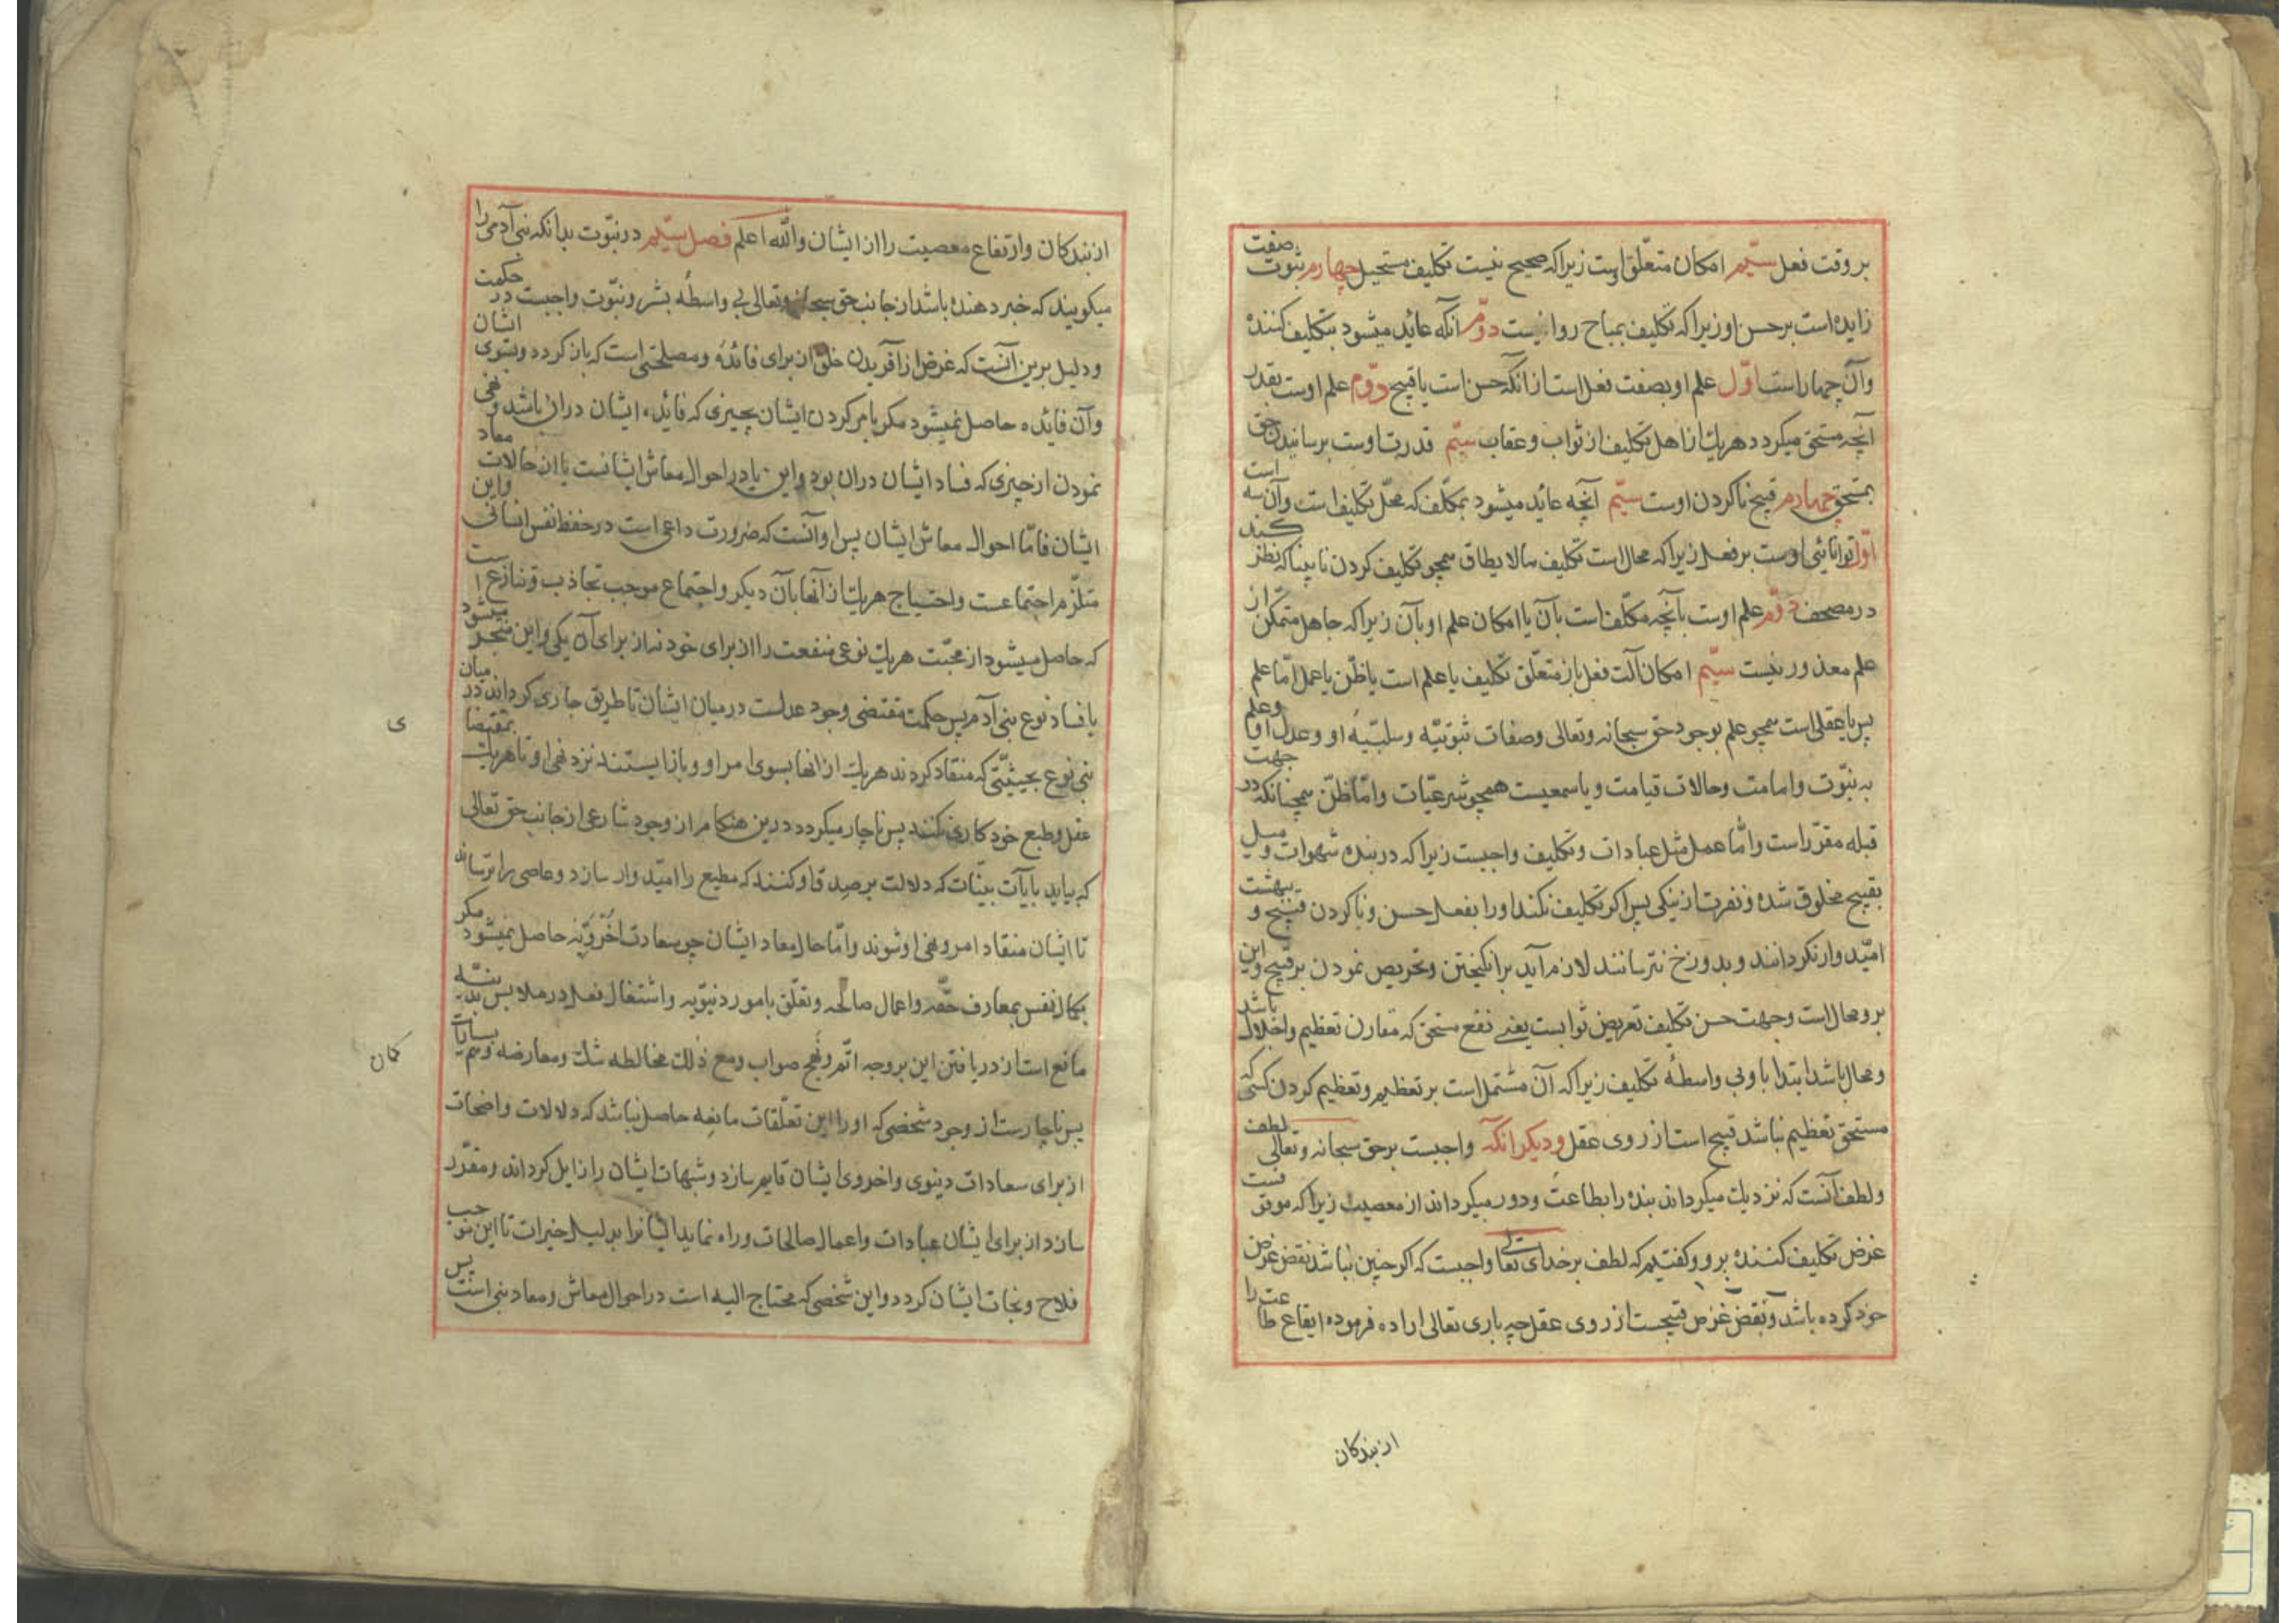 بر وقت فعل سیّم امکان متعلّق اوست زیرا که صحیح نیست تکلیف مستحیل چهارم ثبوت صفت
زایده است بر حسن او زیرا که تکلیف بمباح روا نیست دوّم آنکه عائد میشود بتکلیف کننده
وآن چهار است اوّل علم او بصفت فعل است از آنکه حسن است یا قبیح دوّم علم اوست بقدر
آنچه مستحق میکردد هریک از اهل تکلیف از ثواب و عقاب سیّم قدرت اوست برسانیدن حق
بمستحق چهارم قبیح ناکردن اوست سیّم آنچه عائد میشود بمکلّف که محلّ تکلیف است وآن سه است
اوّل توانائی اوست بر فعل زیرا که محال است تکلیف مالا یطاق همچو تکلیف کردن نابینا که نظر کند
در مصحف دوّم علم اوست بآنچه مکلّف است بآن یا امکان علم او بآن زیرا که جاهل متمکّن از
علم معذور نیست سیّم امکان آلت فعل باز متعلّق تکلیف یا علم است یا ظنّ یا عمل امّا علم
پس یا عقلی است همچو علم بوجود حق سبحانه وتعالی وصفات ثبوتیّه وسلبیّهٔ او وعدل او وعلم
به نبوّت وامامت وحالات قیامت ویا سمعیست همچو شرعیّات وامّا ظنّ همچنانکه در جهت
قبله مقرّر است وامّا عمل مثل عبادات وتکلیف واجبست زیرا که در بنده شهوات ومیل
بقبیح مخلوق شده ونفرت از نیکی پس اکر تکلیف نکند او را بفعل حسن وناکردن قبیح و ببهشت
امیّدوار نکردانند وبدوزخ نترسانند لازم آید برانکیختن وتحریص نمودن بر قبیح واین
برو محال است وجهت حسن تکلیف تعریض ثوابست یعنی نفع مستحق که مقارن تعظیم واجلال باشد
ومحال باشد ابتدا باو بی واسطهٔ تکلیف زیرا که آن مشتمل است بر تعظیم وتعظیم کردن کسی که
مستحق تعظیم نباشد قبیح است از روی عقل ودیکر آنکه واجبست بر حق سبحانه وتعالی لطف
ولطف آنست که نزدیک میکرداند بنده را بطاعت ودور میکرداند از معصیت زیرا که موقوفست
غرض تکلیف کننده برو وکفتیم که لطف بر خدای تعالی واجبست که اکر چنین نباشد نقض غرض
خود کرده باشد ونقض غرض قبیحست از روی عقل چه باری تعالی اراده فرموده ایقاع طاعت را
از بندکان
از بندکان وارتفاع معصیت را از ایشان والله اعلم فصل سیّم در نبوّت بدانکه نبی آدمی را
میکویند که خبر دهنده باشد از جانب حق سبحانه وتعالی بی واسطهٔ بشر ونبوّت واجبست در حکمت
ودلیل برین آنست که غرض از آفریدن خلق از برای فائده ومصلحتی است که باز کردد بسوی ایشان
وآن فائده حاصل نمیشود مکر بامر کردن ایشان بچیزی که فائده ایشان در آن باشد ونهی
نمودن از چیزی که فساد ایشان در آن بود واین یا در احوال معاش ایشانست یا از حالات معاد
ایشان فامّا احوال معاش ایشان پس او آنست که ضرورت داعی است در حفظ نفس انسانی واین
متلزّم اجتماعست واحتیاج هریک از آنها بآن دیکر واجتماع موجب تجاذب وتنازع است
که حاصل میشود از محبّت هریک نوعی منفعت را از برای خود نه از برای آن یکی واین منجر میشود
یا فساد نوع بنی آدم پس حکمت مقتضی وجود عدلست در میان ایشان تا طریق جاری کرداند در میان
بنی نوع بحیثیّتی که منقاد کردند هریک از آنها بسوی امر او وباز ایستند نزد نهی او تا هریک بمقتضا
ی
عقل وطبع خود کاری نکنند پس ناچار میکردد درین هنکام از وجود شارعی از جانب حق تعالی
که بیاید بآیات بیّنات که دلالت بر صدق او کنند که مطیع را امیّدوار سازد وعاصی را بترساند
تا ایشان منقاد امر ونهی او شوند وامّا حال معاد ایشان چون سعادت اُخْرَوِیَّه حاصل نمیشود مکر
بکمال نفس بمعارف حقّه واعمال صالحه وتعلّق بامور دنیویه واشتغال نعل در ملابس بدنیّه
مانع است از دریافتن این بر وجه اتمّ ونهج صواب ومع ذٰلک مخالطه شک ومعارضه وهم بسا
کان
پس ناچار است از وجود شخصی که او را این تعلّقات مانعه حاصل نباشد که دلالات واضحات
از برای سعادات دینوی واخروی ایشان قایم سازد وشبهات ایشان را زایل کرداند ومقرّر
سازد از برای ایشان عبادات واعمال صالحات وراه نماید ایشانرا بدلیل خیرات تا این موجب
فلاح ونجات ایشان کردد واین شخصی که محتاج الیه است در احوال معاش ومعاد نبی است پس